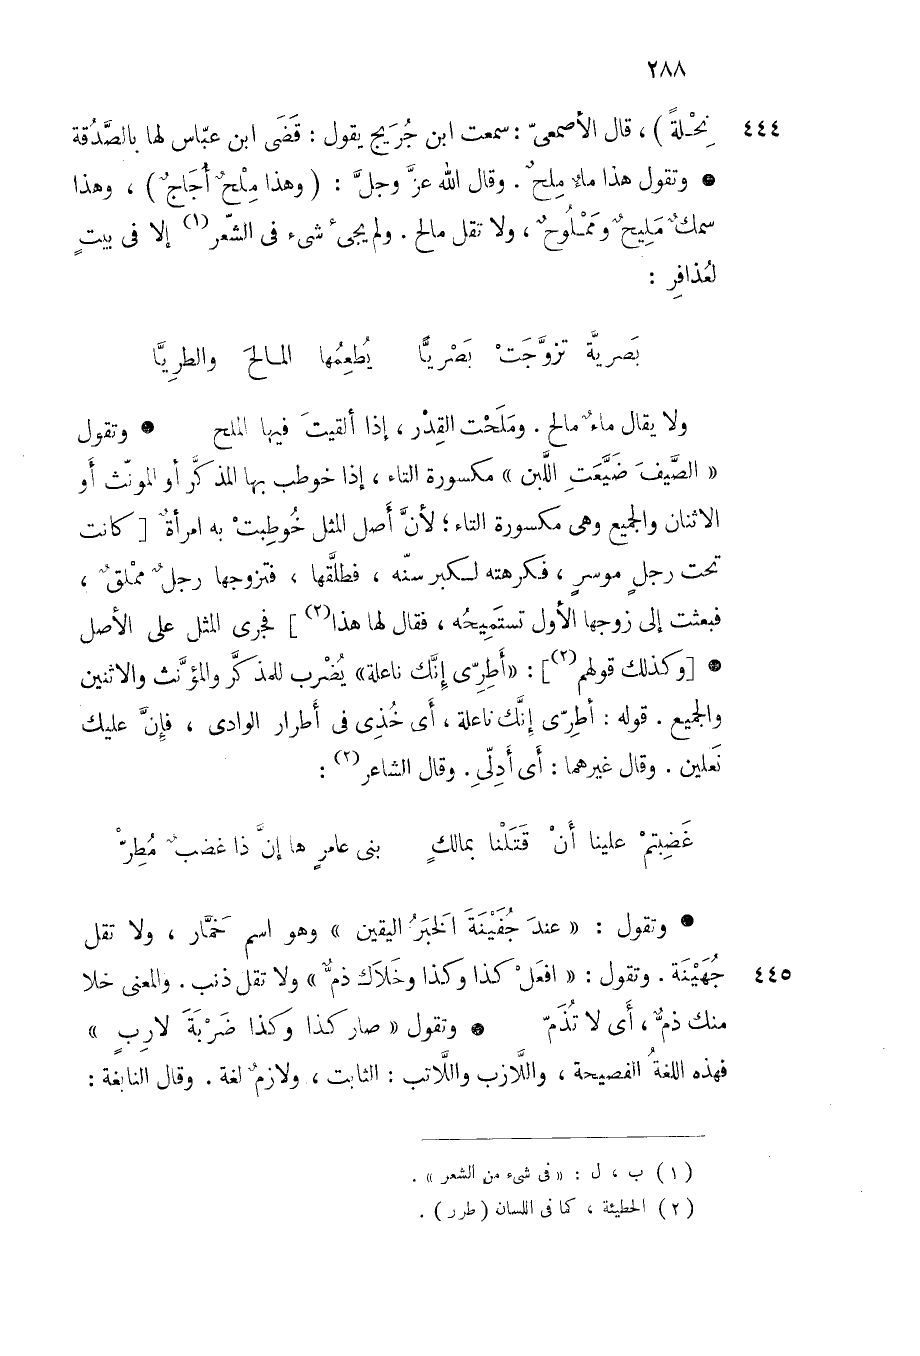 ٢٨٨
٤٤٤ نِحْلةً ) ، قال الأصمعىّ : سمعت ابن جُرَيج يقول : قَضَى ابن عبّاس لها بالصَّدُقة
● وتقول هذا ماءٌ مِلحٌ . وقال الله عزَّ وجلَّ : ( وهذا مِلْحٌ أُجَاجٌ ) ، وهذا
سمكٌ مَلِيحٌ ومَمْلُوحٌ ، ولا تقل مالح . ولم يجئ شىء فى الشّعر(١) إلا فى بيتٍ
لعُذافِرٍ :
بَصريَّة تزوَّجَتْ بَصْريًّا يُطعِمُها المالحَ والطريَّا
ولا يقال ماءٌ مالح . ومَلَحْت القِدْر ، إذا ألقيتَ فيها الملح ● وتقول
« الصَّيفَ ضَيَّعَتِ اللَّبن » مكسورة التاء ، إذا خوطب بها المذكَّر أو المونّث أو
الاثنان والجميع وهى مكسورة التاء ؛ لأنَّ أَصل المثل خُوطِبتْ به امرأةٌ [ كانت
تحت رجلٍ موسرٍ ، فكرهته لكبر سنّه ، فطلَّقها ، فتزوجها رجلٌ مملقٌ ،
فبعثت إلى زوجها الأول تستَمِيحُه ، فقال لها هذا(٢) ] فجرى المثل على الأصل
● [وكذلك قولهم(٢)] : «أَطِرِّى إنَّك ناعلة» يُضْرب للمذكَّر والمؤنَّث والاثنين
والجميع . قوله : أطِرّى إنَّك ناعلة ، أى خُذى فى أَطرار الوادى ، فإنَّ عليك
نَعلين . وقال غيرهما : أى أَدِلِّى . وقال الشاعر(٢) :
غَضِبتمْ علينا أَنْ قَتَلْنا بمالكٍ بنى عامرٍ ها إنَّ ذا غضبٌ مُطِرّْ
● وتقول : « عندَ جُفَيْنَةَ الخبَرُ اليقين » وهو اسم خَمَّار ، ولا تقل
٤٤٥ جُهَيْنَة . وتقول : « افعَلْ كذا وكذا وخَلَاكَ ذمٌّ » ولا تقل ذنب . والمعنى خلا
منك ذمٌّ ، أَى لا تُذَمّ ● وتقول « صار كذا وكذا ضَرْبَةَ لازِبٍ »
فهذه اللغةُ الفصيحة ، واللَّازب واللَّاتب : الثابت ، ولازمٌ لغة . وقال النابغة :
(١) ب ، ل : « فى شىء من الشعر » .
(٢) الحطيئة ، كما فى اللسان (طرر) .